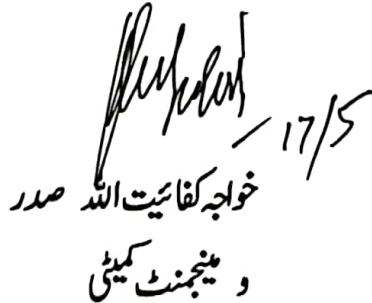 17/5
خواجہ کفائیت اللہ صدر
و مینجمنٹ کمیٹی